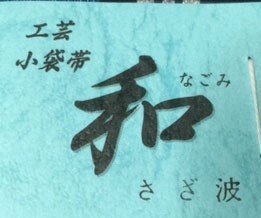 工芸
小袋帯
和
なごみ
さざ波